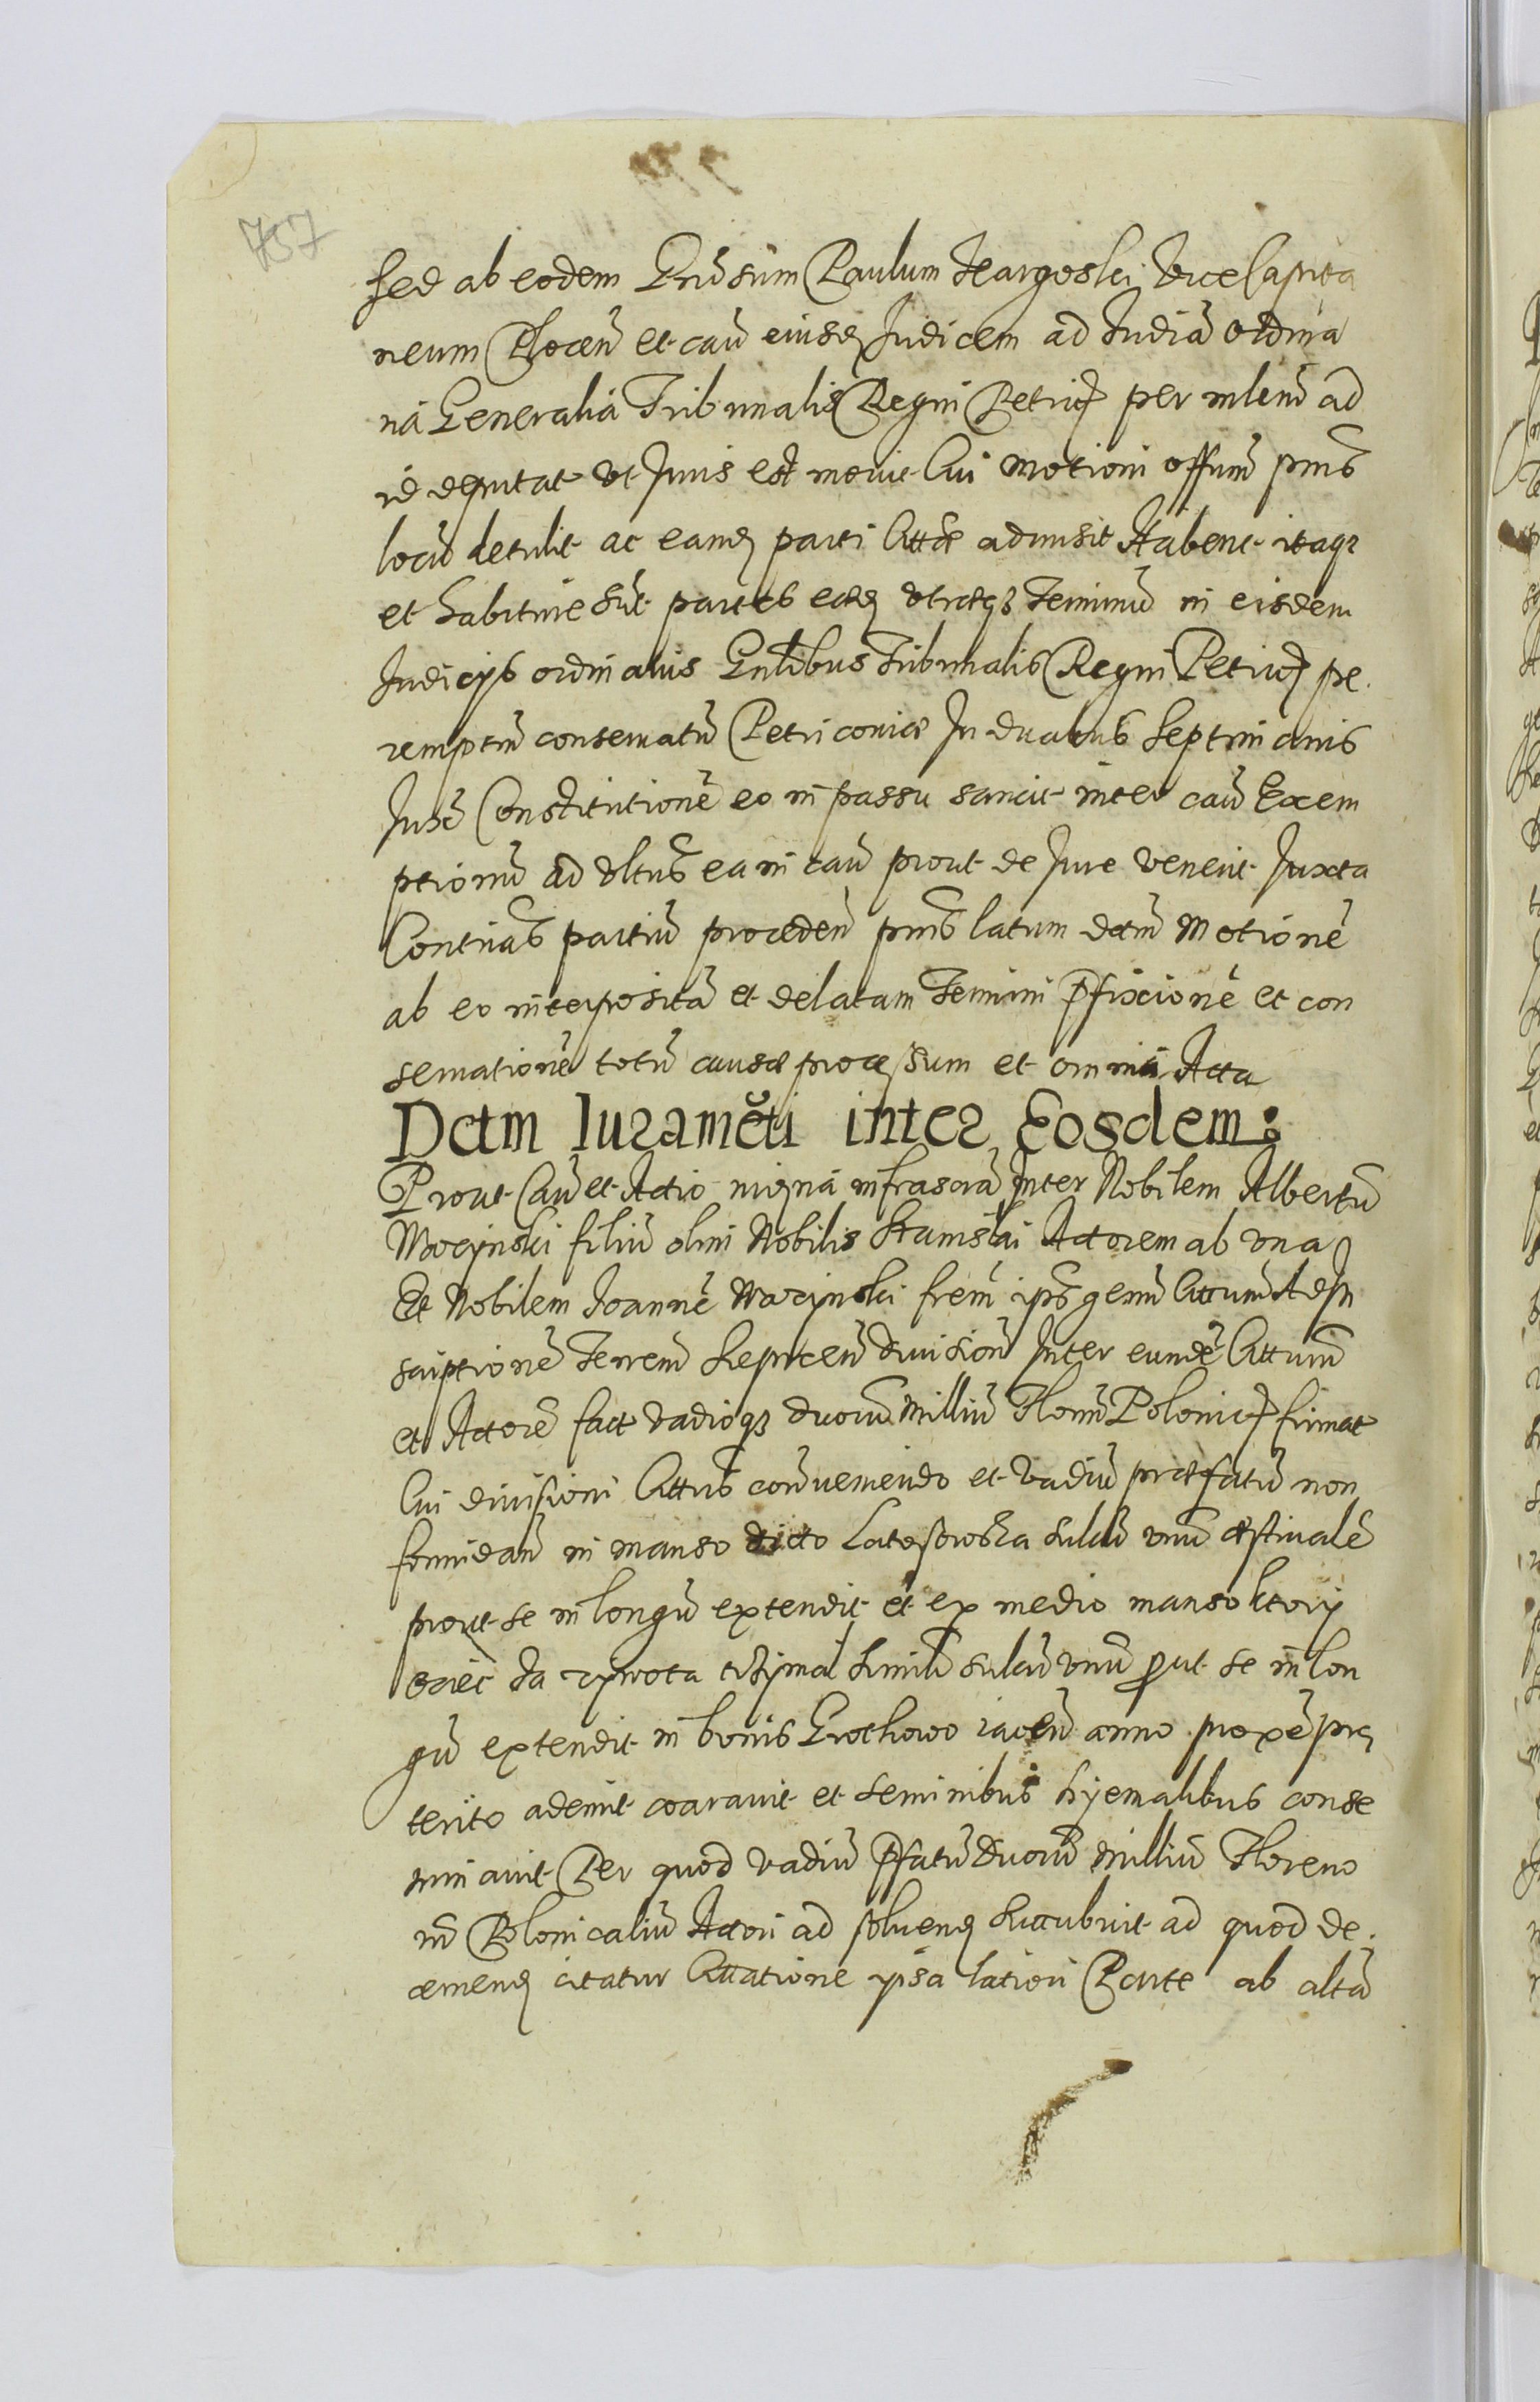 757
sed ab eodem Gnrosum Paulum Nargoski Vice Capita
neum Plocen̄ et cau᷈ eiusd Judicem ad Judia᷈ ordina
ria Generalia Tribunalis Regni Petric per inlem᷈ ad
id deputat vt Juris est mouit Cui motioni offium᷈ pnīs
locu᷈ detulit ac eamd parti Cittæ admisit Habent itaqз
et habituræ su᷈t partes eæd vtræqз Terminu᷈ in eisdem
Judicijs ordinarijs Gnlibus Tribunalis Regni Petric pe.
remptiu᷈ conseruatu᷈ Petricouiæ In duabus Septimanis
Juxē Constitutione᷈ eo in passu sancit inter cau᷈ Exem
ptionu᷈ ad vltu᷈s ea in cau᷈ prout de Jure venerit Juxta
Contrīas partiu᷈ proceden̄ pnīs latum dctm᷈ Motione᷈
ab eo interposita᷈ et delatam Termini p̄fixione᷈ et con
seruatione᷈ totu᷈ causæ processum et omnia Acta
Dctm Iuramēti inter Eosdem:
Prout Cau᷈ et Actio nigna᷈ infrascra᷈ Inter Nobilem Albertu᷈
Mocynski filiu᷈ olim Nobilis Stanislai Actorem ab vna
Et Nobilem Joanne᷈ Mocynski frēm ips᷈ germ᷈ Cittum᷈ Ad In
scriptione᷈ Terrem᷈ Sepricen̄ diuision᷈ Inter eunde᷈ Cittum᷈
et Actore᷈ fact vadioqз duoru᷈ Milliu᷈ Floru᷈ Polonic firmat
Cui diuisioni Cittus᷈ con᷈ueniendo et vadiu᷈ præfatu᷈ non
formidan᷈ in manso dicto Latoszowska sulcu᷈ vnu᷈ æstiuale᷈
prout se in longu᷈ extendit et ex medio manso ktory
od tych simil᷈ sulcu᷈ vnu᷈ prout se in lon
gu᷈ extendit in bonis Grochowo iacen᷈ anno proxe᷈ præ
terito ademit coarauit et seminibus hyemalibus conse
minauit Per quod vadiu᷈ p̄fatu᷈ duoru᷈ milliu᷈ Floreno
ru᷈ Polonicaliu᷈ Actori ad soluend succubuit ad quod de.
cernend citatur Citatione ipsa latiori Parte ab alta᷈